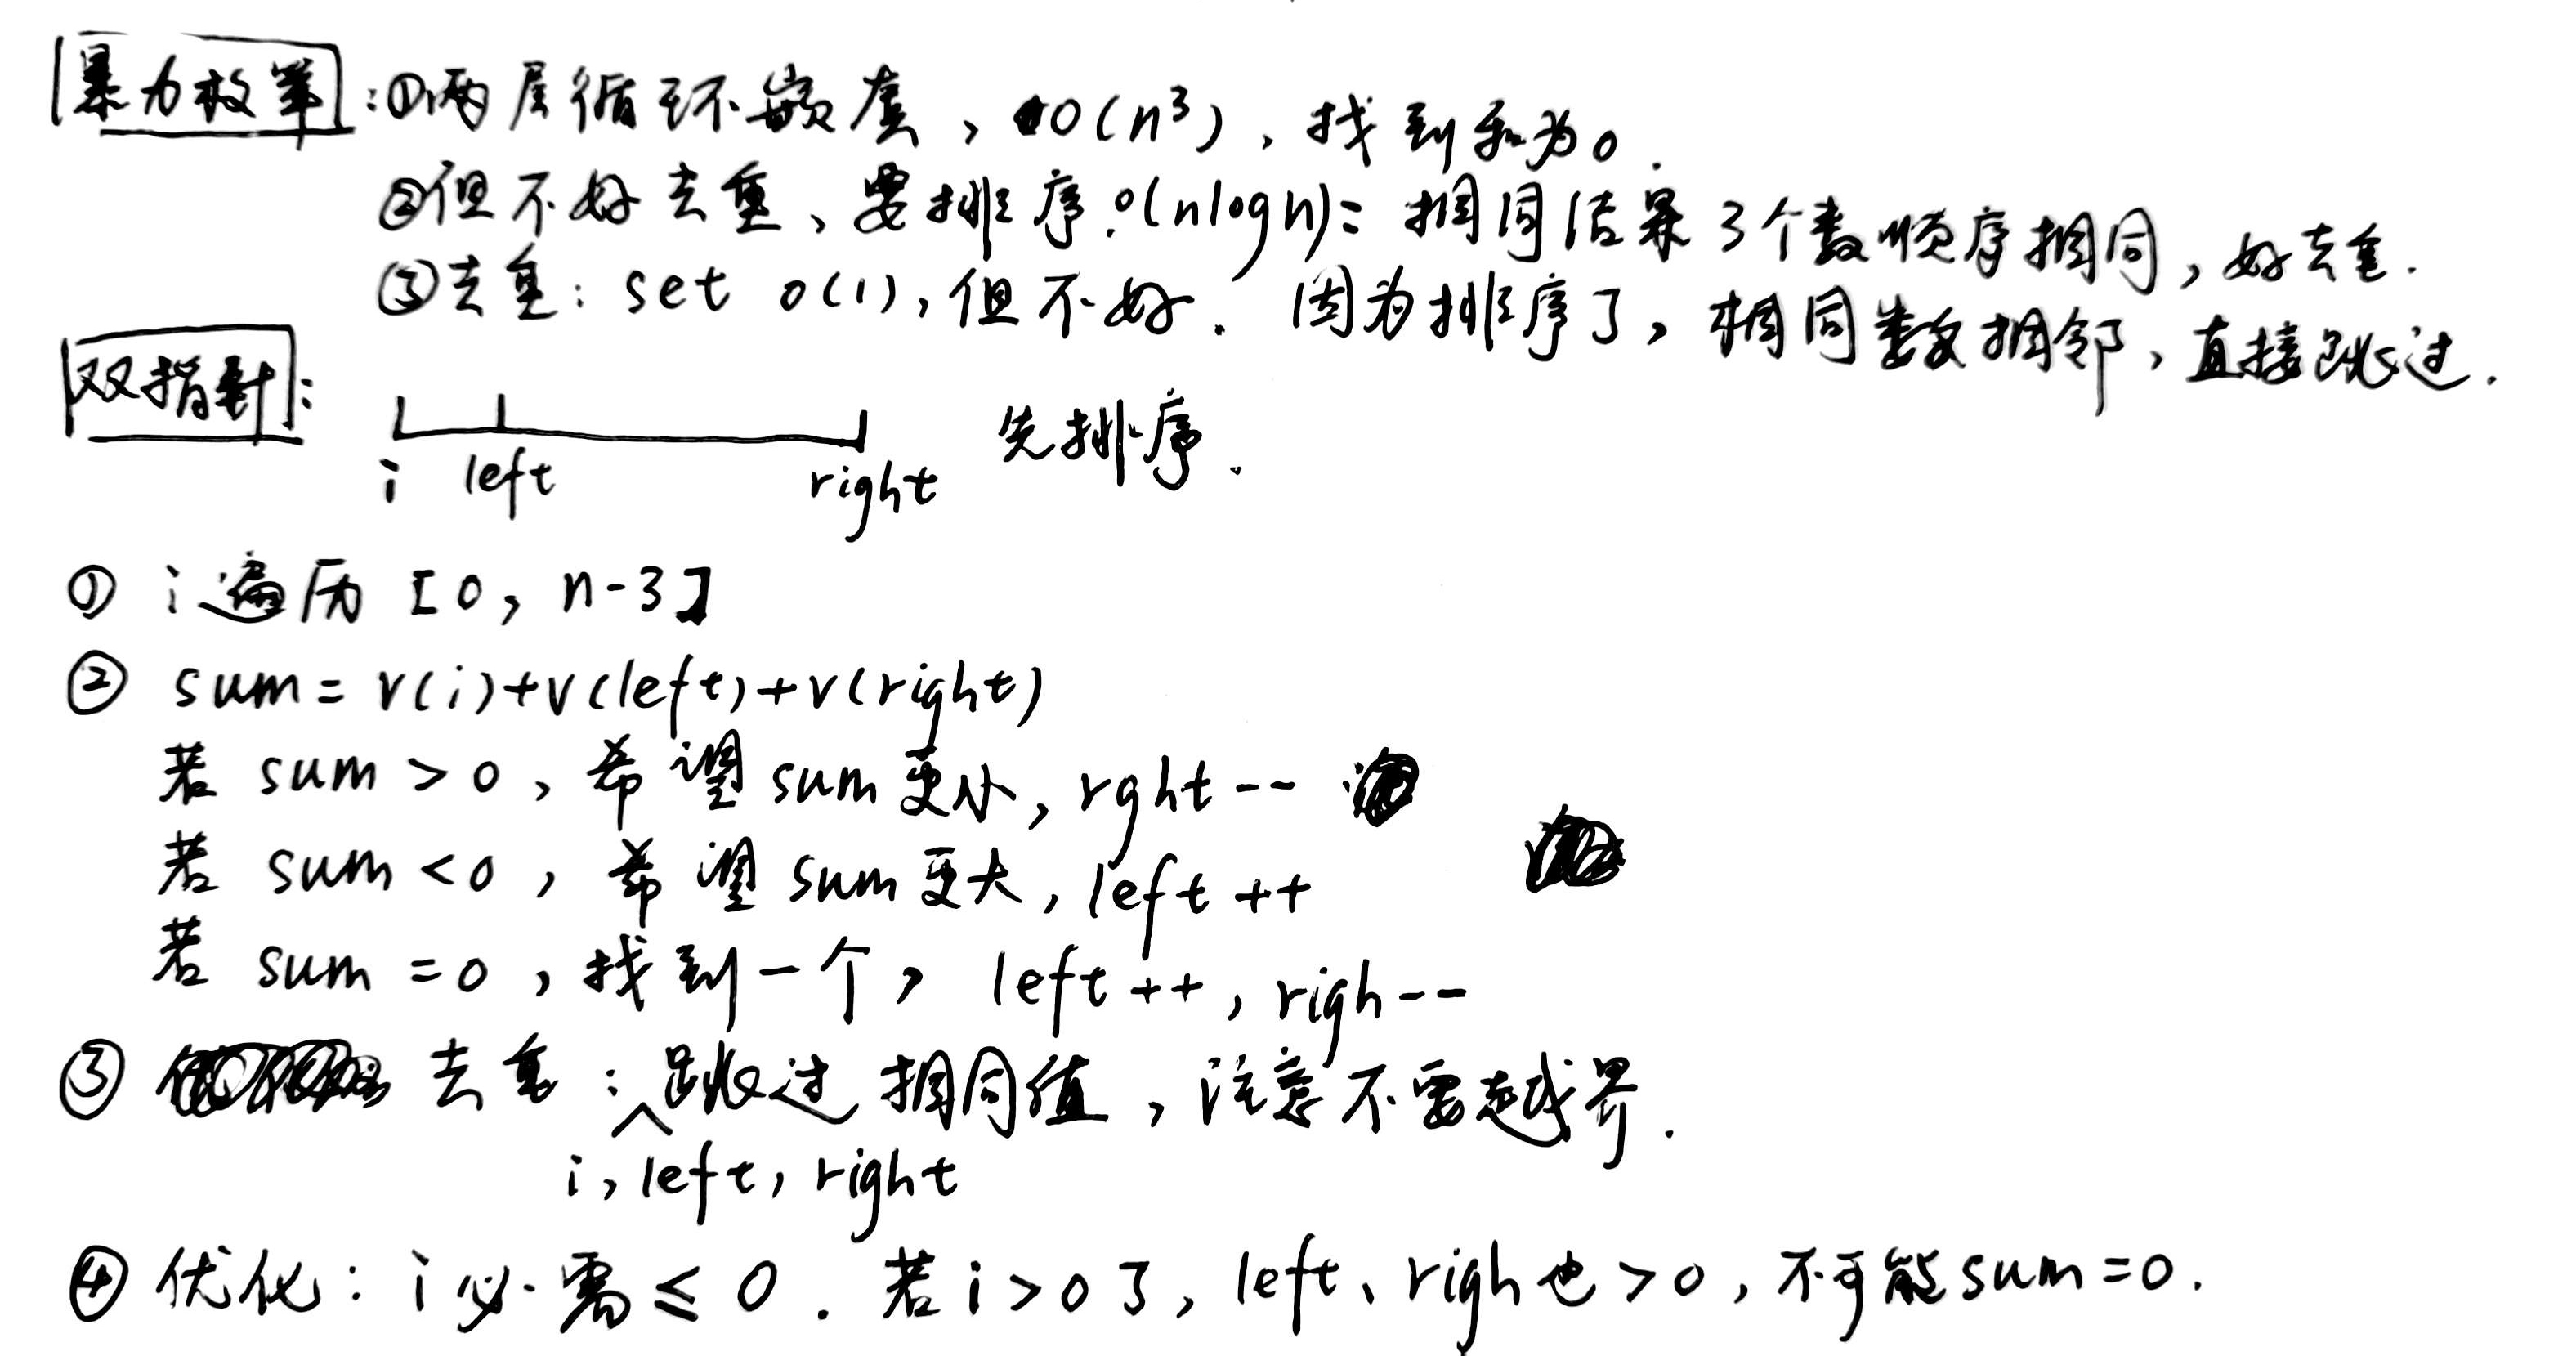 暴力枚举:①两层循环嵌套,O(n³),找到和为0.
②但不好去重、要排序.O(nlogn):相同结果3个数顺序相同,好去重.
③去重: set O(1),但不好. 因为排序了,相同数相邻,直接跳过.
双指针:
先排序.
i left right
① i遍历 [0, n-3]
② sum=v(i)+v(left)+v(right)
若 sum > 0,希望sum更小,rght--
若 sum < 0,希望sum更大,left++
若 sum = 0,找到一个, left++, righ--
③ 去重: 跳过相同值,注意不要越界.
i, left, right
④ 优化: i必需 ≤ 0. 若i>0了, left、righ也>0,不可能sum=0.